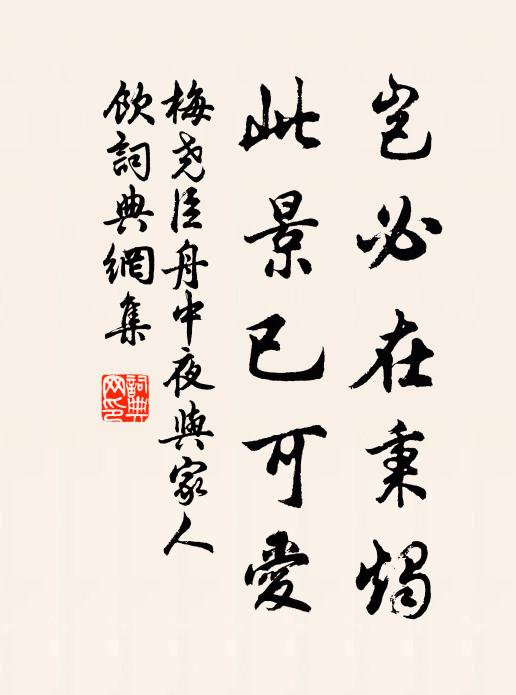 岂必在秉燭
此景已可愛
梅尧臣舟中夜與家人
飲詞典網集
詞典
网印